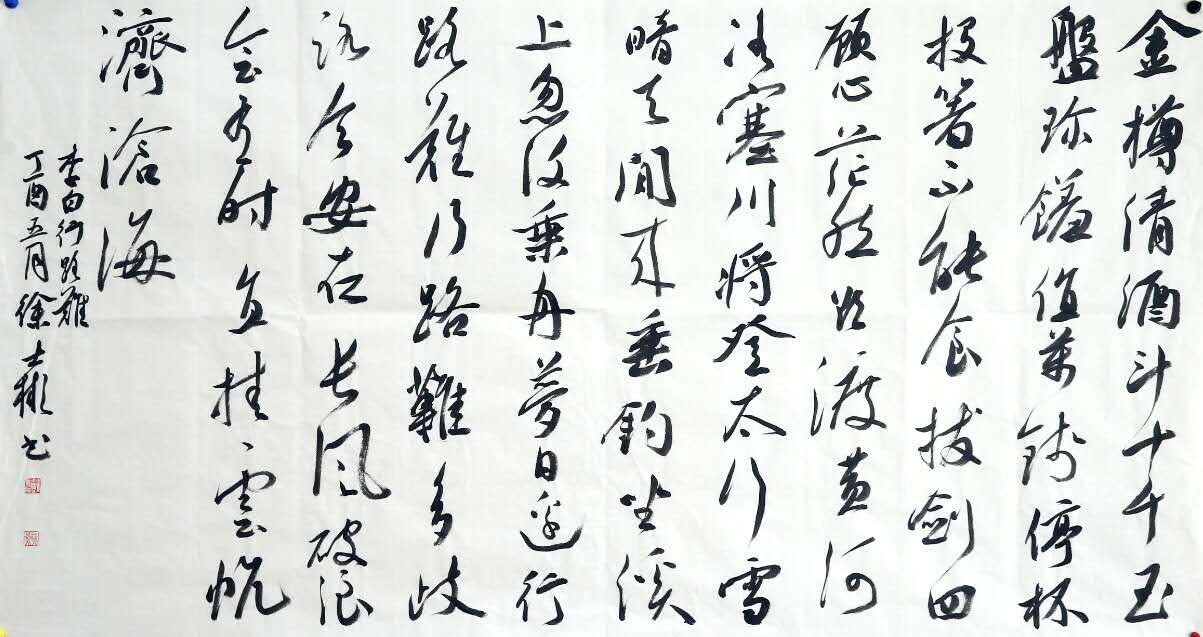 金樽清酒斗十千玉
盤珎饈值萬錢停杯
投箸不能食拔劍四
顧心茫然欲渡黄河
冰塞川將登太行雪
暗天閒來垂釣坐溪
上忽復乘舟夢日邊行
路難行路難多歧
路今安在長風破浪
會有時直掛雲帆
濟滄海
李白行路難
丁酉五月徐士彬书